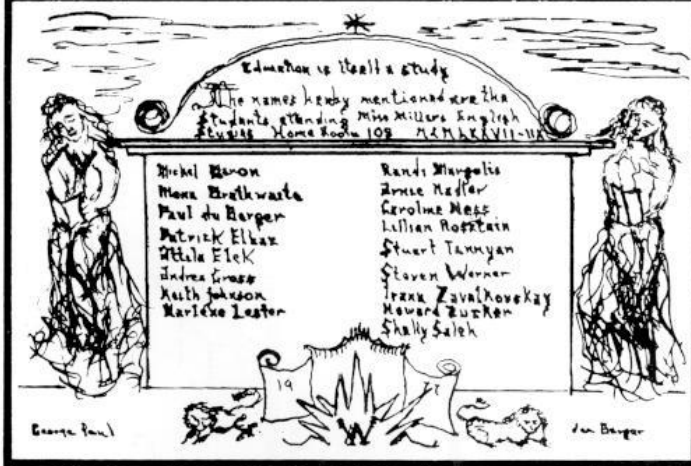 Education is itself a study
The names hereby mentioned are the
Students attending Miss Millers English
Studies Home Room 108 MCMLXXVII-IIX
Michel Baron
Mona Brathwaite
Paul du Berger
Patrick Elbaz
Attila Elek
Andrea Gross
Keith Johnson
Marlene Lester
Randi Margolis
Ernie Nadler
Caroline Ness
Lillian Rosstain
Stuart Tannyan
Steven Werner
Irena Zavalkovskay
Howard Zucker
Shelly Saleh
19 77
George Paul
du Berger